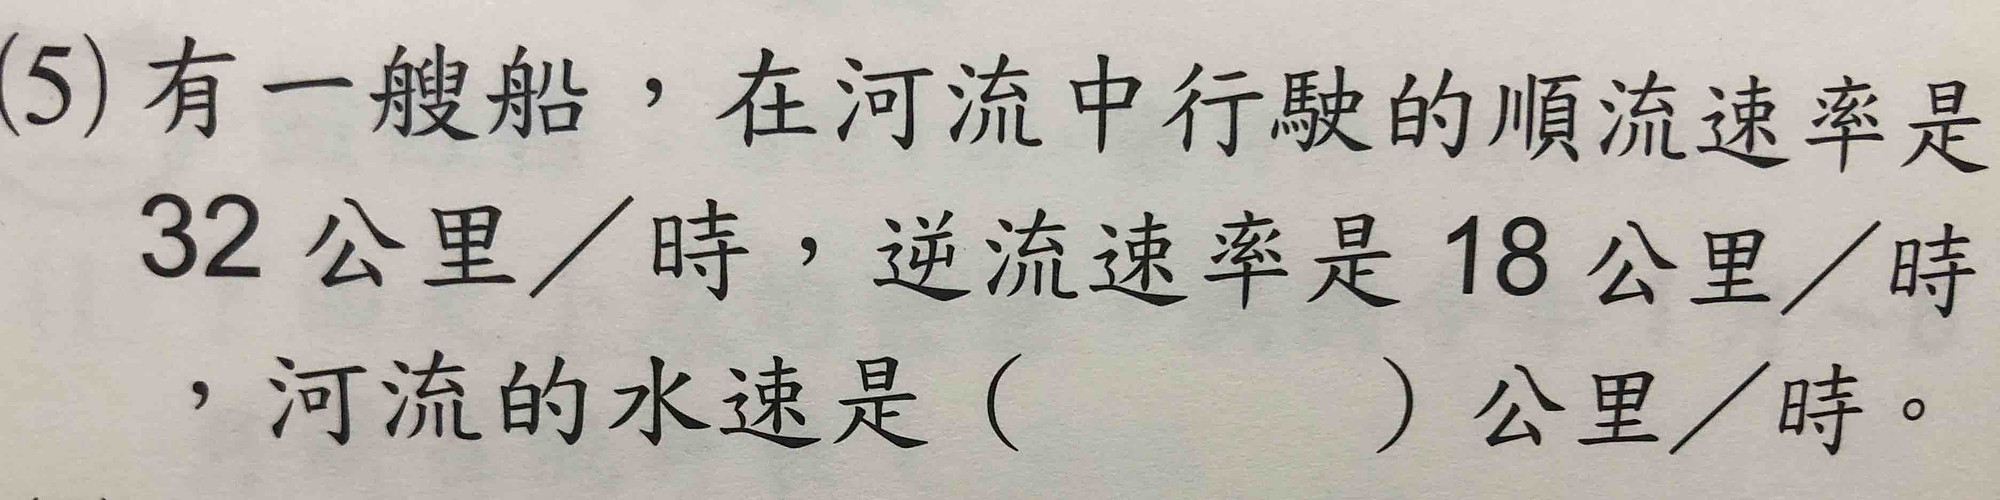 (5) 有一艘船，在河流中行駛的順流速率是
32 公里／時，逆流速率是 18 公里／時
，河流的水速是（　　　　）公里／時。